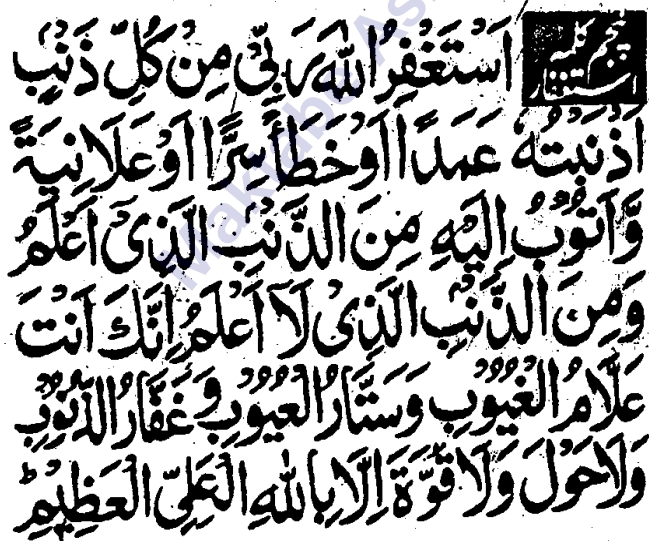 پنجم کلمہ استغفار
اَسْتَغْفِرُ اللّٰهَ رَبِّیْ مِنْ کُلِّ ذَنْبٍ
اَذْنَبْتُهٗ عَمَدًا اَوْ خَطَأً سِرًّا اَوْ عَلَانِیَةً
وَّاَتُوْبُ اِلَیْهِ مِنَ الذَّنْبِ الَّذِیْ اَعْلَمُ
وَمِنَ الذَّنْبِ الَّذِیْ لَآ اَعْلَمُ اِنَّكَ اَنْتَ
عَلَّامُ الْغُیُوْبِ وَسَتَّارُ الْعُیُوْبِ وَ غَفَّارُ الذُّنُوْبِ
وَلَا حَوْلَ وَلَا قُوَّةَ اِلَّا بِاللّٰهِ الْعَلِیِّ الْعَظِیْمِ ؕ